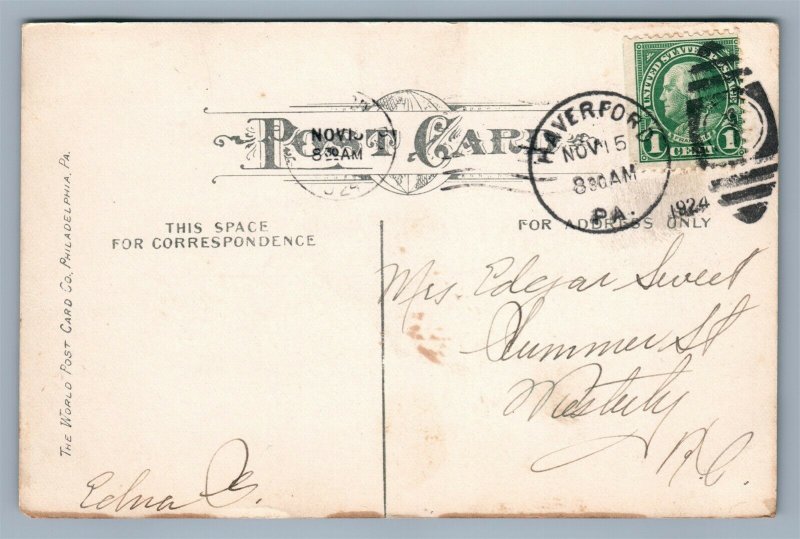 POST CARD
NOV 15
8 30 AM
HAVERFORD
NOV 15
8 30 AM
PA.
1924
UNITED STATES POSTAGE
FRANKLIN
1 CENT 1
THIS SPACE
FOR CORRESPONDENCE
FOR ADDRESS ONLY
THE WORLD POST CARD CO., PHILADELPHIA, PA.
Mrs Edgar Sweet
Summer St
Westerly
R.I.
Edna S.